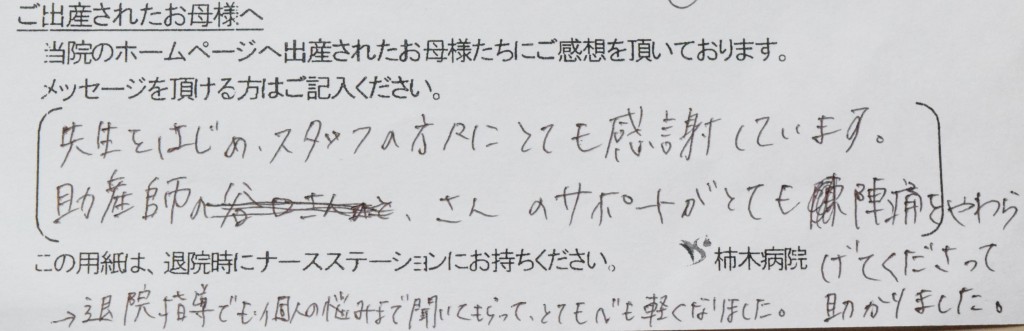 ご出産されたお母様へ
当院のホームページへ出産されたお母様たちにご感想を頂いております。
メッセージを頂ける方はご記入ください。
先生をはじめ、スタッフの方々にとても感謝しています。
助産師の 、さん のサポートがとても 陣痛をやわら
げてくださって
助かりました。
この用紙は、退院時にナースステーションにお持ちください。
柿木病院
→退院指導でも個人の悩みまで聞いてもらって、とても心も軽くなりました。